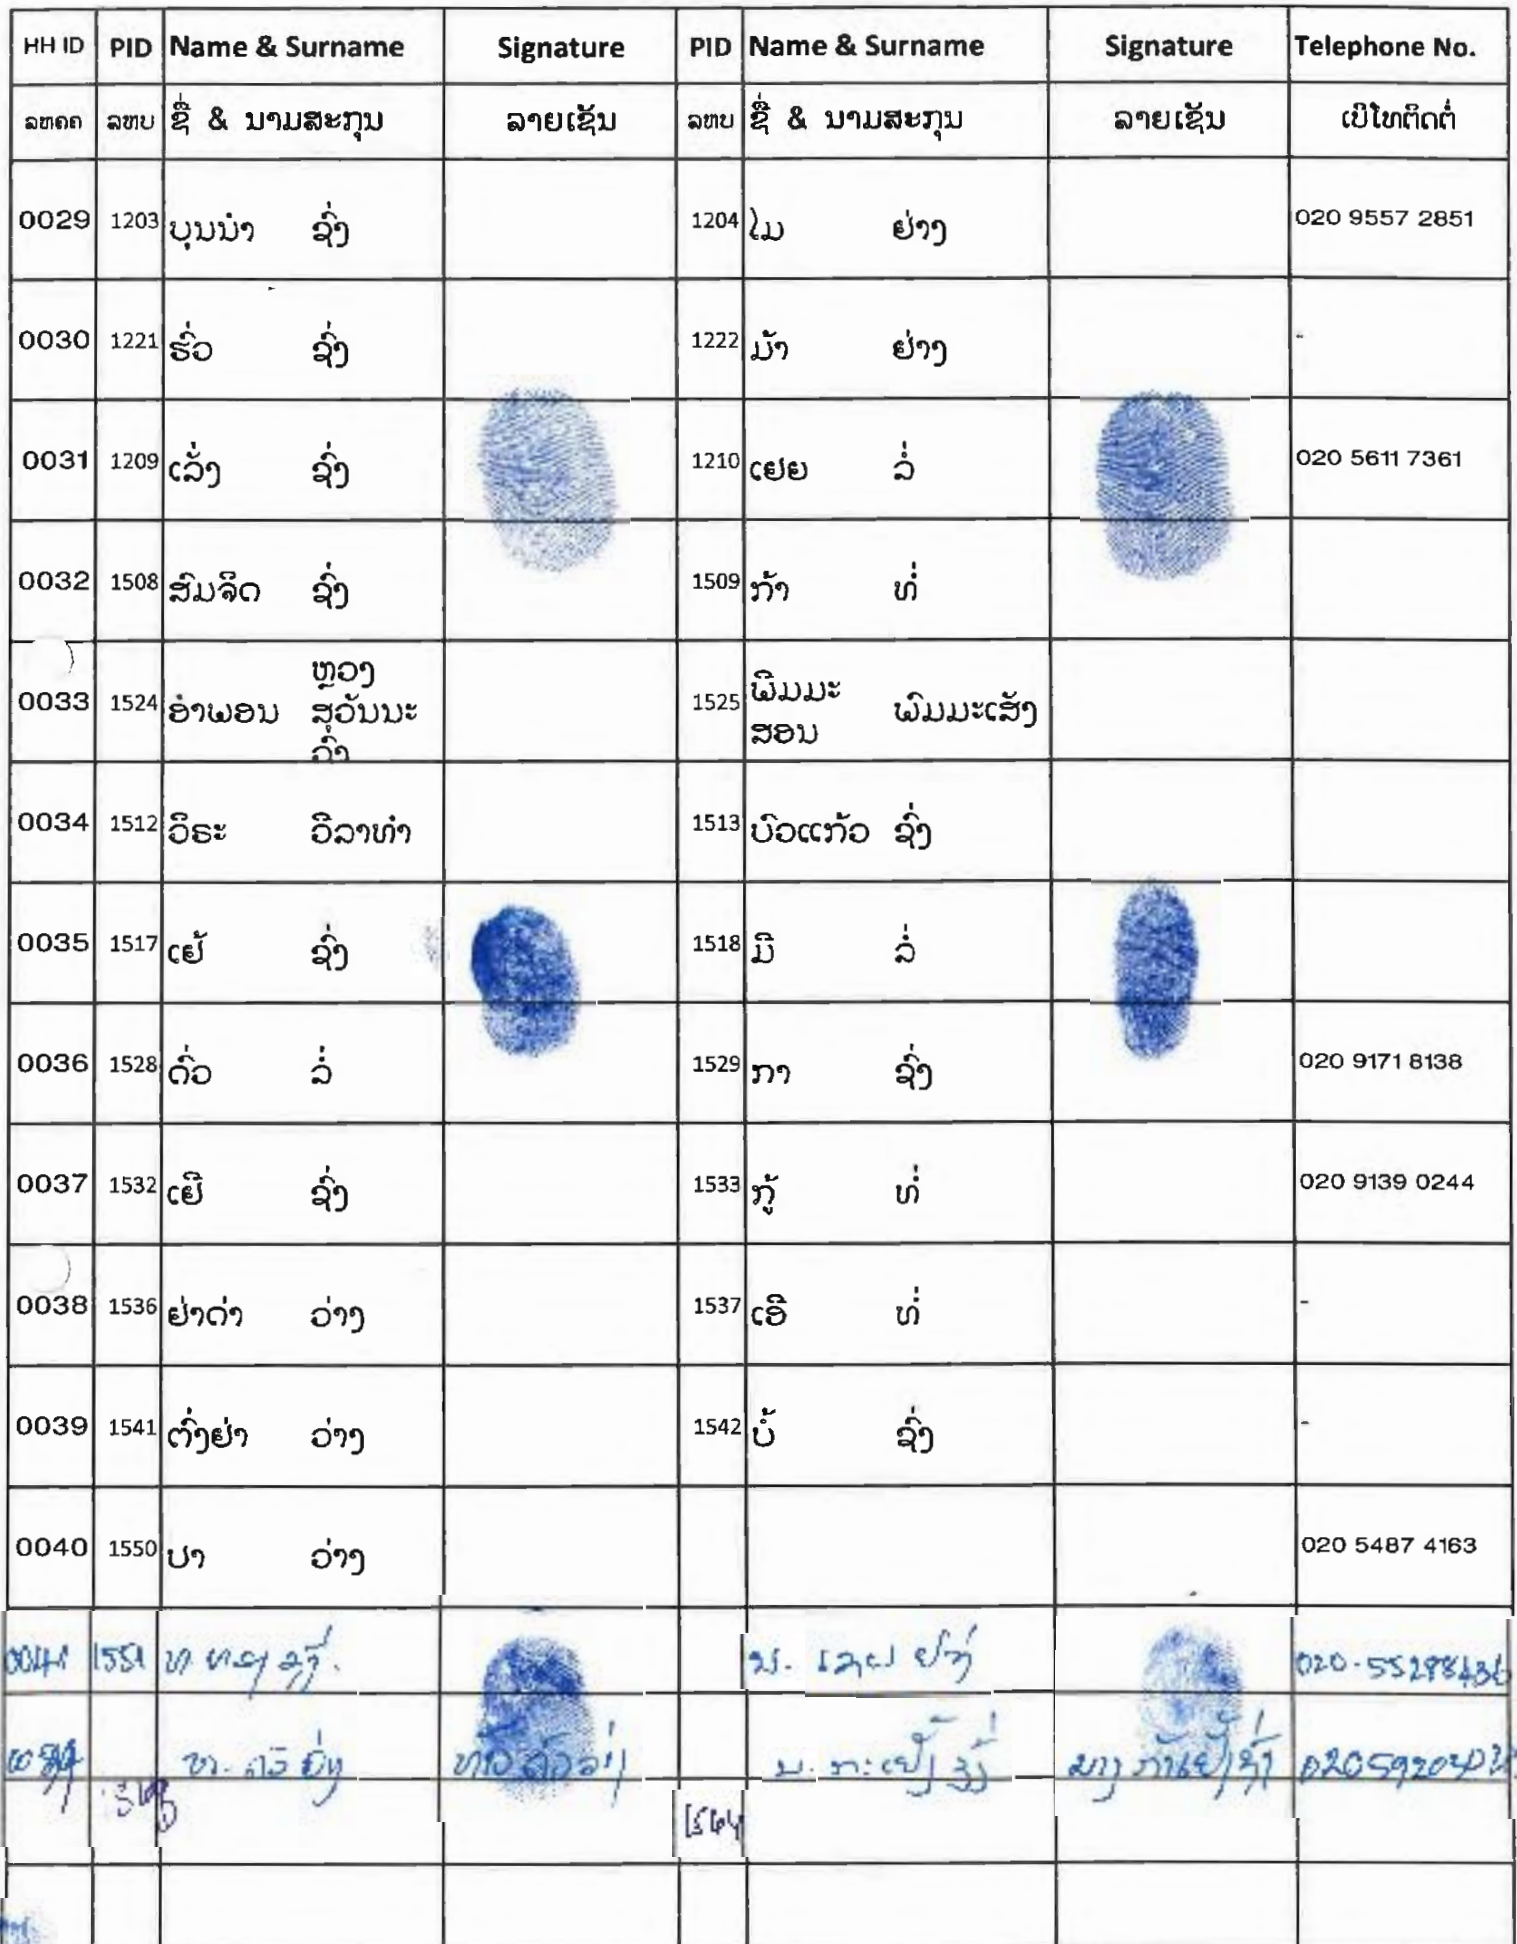 HH ID PID Name & Surname Signature PID Name & Surname Signature Telephone No.
ລຫຄຄ ລຫບ ຊື່ & ນາມສະກຸນ ລາຍເຊັນ ລຫບ ຊື່ & ນາມສະກຸນ ລາຍເຊັນ ເບີໂທຕິດຕໍ່
0029 1203 ບຸນນຳ ຊົ່ງ 1204 ໄມ ຢ່າງ 020 9557 2851
0030 1221 ຮົ່ວ ຊົ່ງ 1222 ມ້າ ຢ່າງ -
0031 1209 ເລັ່ງ ຊົ່ງ 1210 ເຢຍ ລໍ່ 020 5611 7361
0032 1508 ສົມຈິດ ຊົ່ງ 1509 ກ້າ ທໍ່
0033 1524 ອຳພອນ ຫຼວງ ສຸວັນນະ ວົງ 1525 ພິມມະ ສອນ ພົມມະເສັງ
0034 1512 ວິຣະ ວິລາທຳ 1513 ບົວແກ້ວ ຊົ່ງ
0035 1517 ເຢ້ ຊົ່ງ 1518 ມີ ລໍ່
0036 1528 ດົ່ວ ລໍ່ 1529 ກາ ຊົ່ງ 020 9171 8138
0037 1532 ເຢີ ຊົ່ງ 1533 ກູ້ ທໍ່ 020 9139 0244
0038 1536 ຢ່າດ່າ ວ່າງ 1537 ເອີ ທໍ່ -
0039 1541 ຕົ່ງຢ່າ ວ່າງ 1542 ບໍ້ ຊົ່ງ -
0040 1550 ປາ ວ່າງ 020 5487 4163
0041 1551 020-55288436
1564